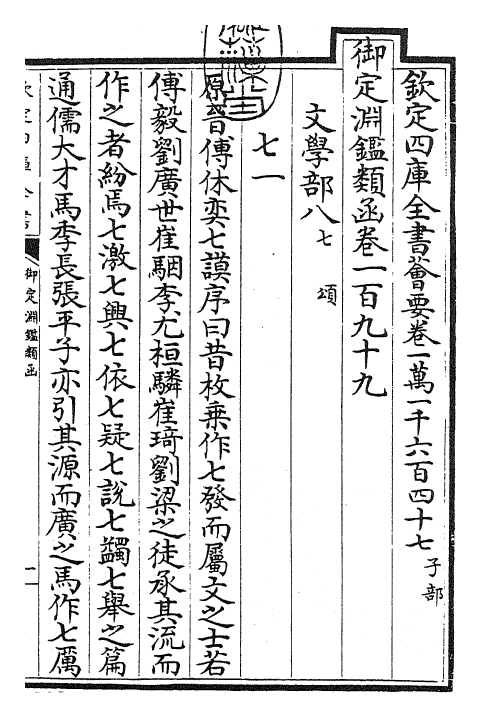 欽定四庫全書薈要卷一萬一千六百四十七 子部
御定淵鑑類函卷一百九十九
文學部八 七 頌
七一
原晉傅休奕七謨序曰昔枚乗作七發而屬文之士若
傅毅劉廣世崔駰李尤桓驎崔琦劉梁之徒承其流而
作之者紛焉七激七興七依七疑七說七蠲七舉之篇
通儒大才馬季長張平子亦引其源而廣之馬作七厲
御定淵鑑類函
一